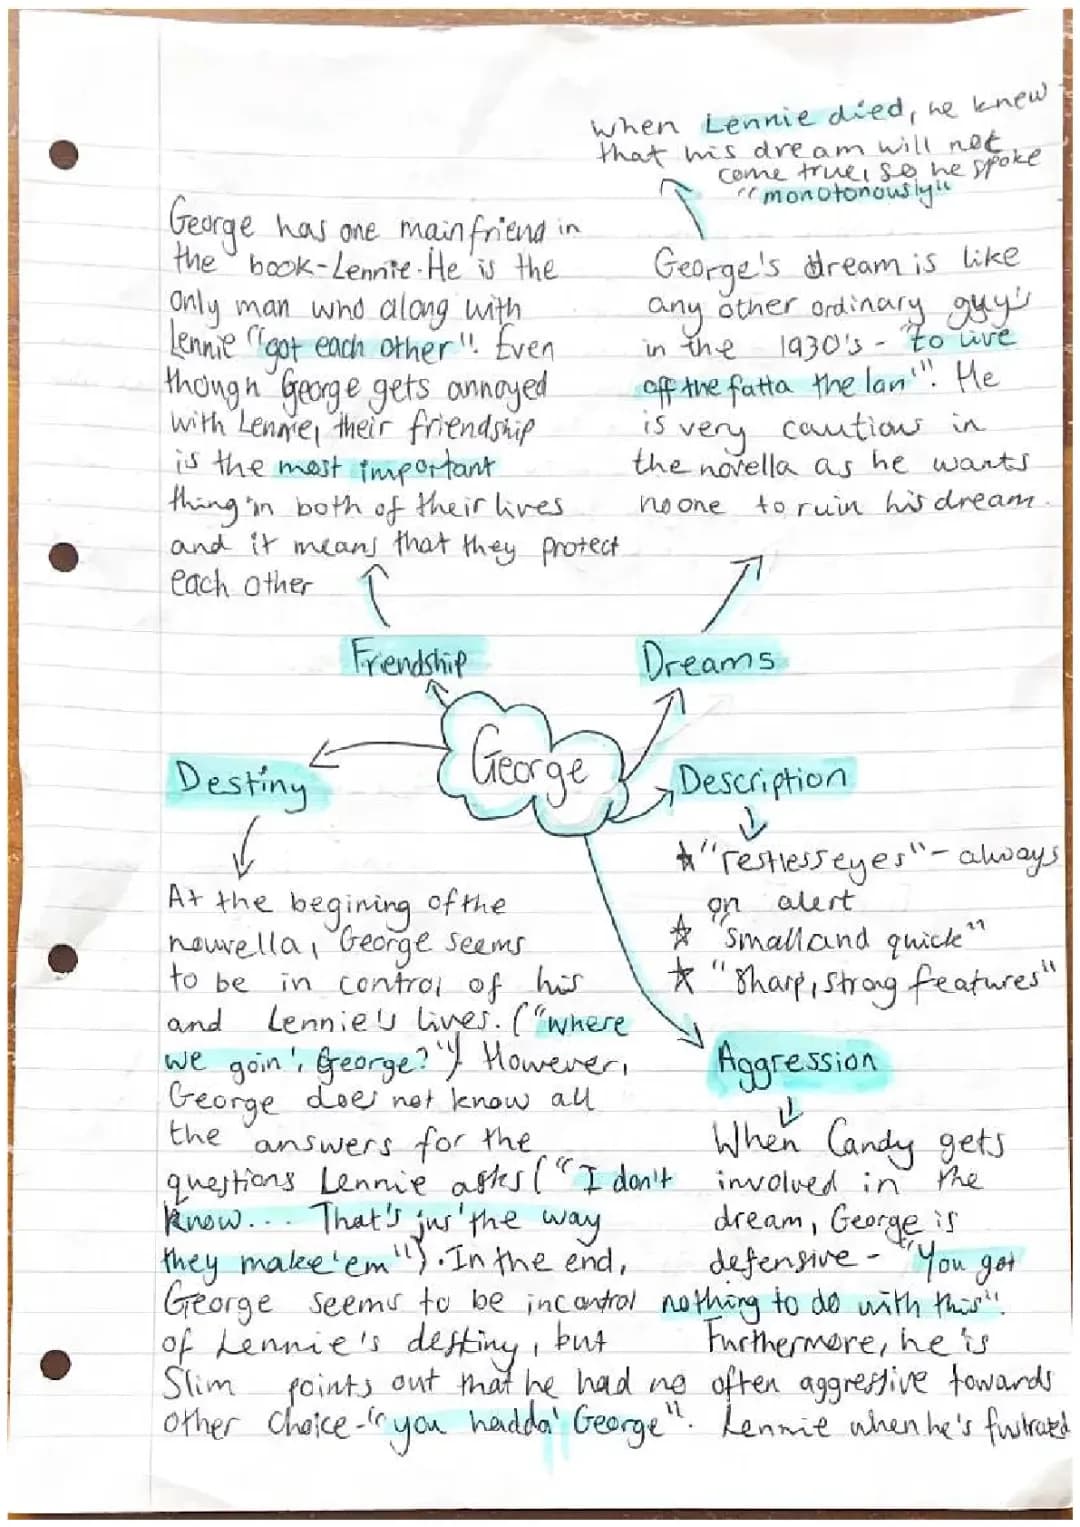 When Lennie died, he knew
that his dream will not
come true, so he spoke
"monotonously"
George has one main friend in
the book-Lennie. He is the
only man who along with
Lennie "got each other". Even
though George gets annoyed
with Lennie, their friendship
is the most important
thing in both of their lives
and it means that they protect
each other
George's dream is like
any other ordinary guy's
in the 1930's - "to live
off the fatta the lan'". He
is very cautious in
the novella as he wants
no one to ruin his dream.
Friendship
Dreams
George
Destiny
Description
"restless eyes" - always
on alert
"small and quick"
"sharp, strong features"
At the begining of the
nouvella, George seems
to be in control of his
and Lennie's lives. ("where
we goin', George?") However,
George does not know all
the answers for the
questions Lennie asks ("I don't
know... That's jus' the way
they make 'em"). In the end,
George seems to be incontrol
of Lennie's destiny, but
Slim points out that he had no
other choice - "you hadda' George".
Aggression
When Candy gets
involved in the
dream, George is
defensive - "You got
nothing to do with this".
Furthermore, he is
often aggressive towards
Lennie when he's fustrated